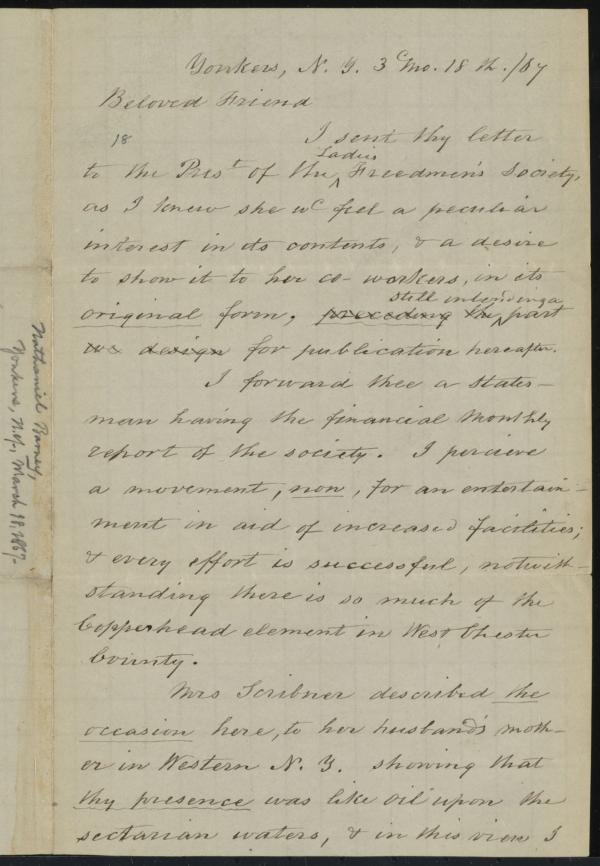 Yonkers, N. Y. 3^c Mo. 18th./67
Beloved Friend
18
I sent thy letter
to the Pres^t of the Ladies Freedmen's Society,
as I knew she w^d feel a peculiar
interest in its contents, & a desire
to show it to her co-workers, in its
original form, preceding the still intending a part
we design for publication hereafter.
I forward thee a States-
man having the financial monthly
report of the society. I percieve
a movement, now, for an entertain-
ment in aid of increased facilities;
& every effort is successful, notwith-
standing there is so much of the
Copperhead element in West Chester
County.
Mrs Scribner described the
occasion here, to her husband's moth-
er in Western N. Y. showing that
thy presence was like oil upon the
sectarian waters, & in this view I
Nathaniel Barney,
Yonkers, N.Y., March 18, 1867.